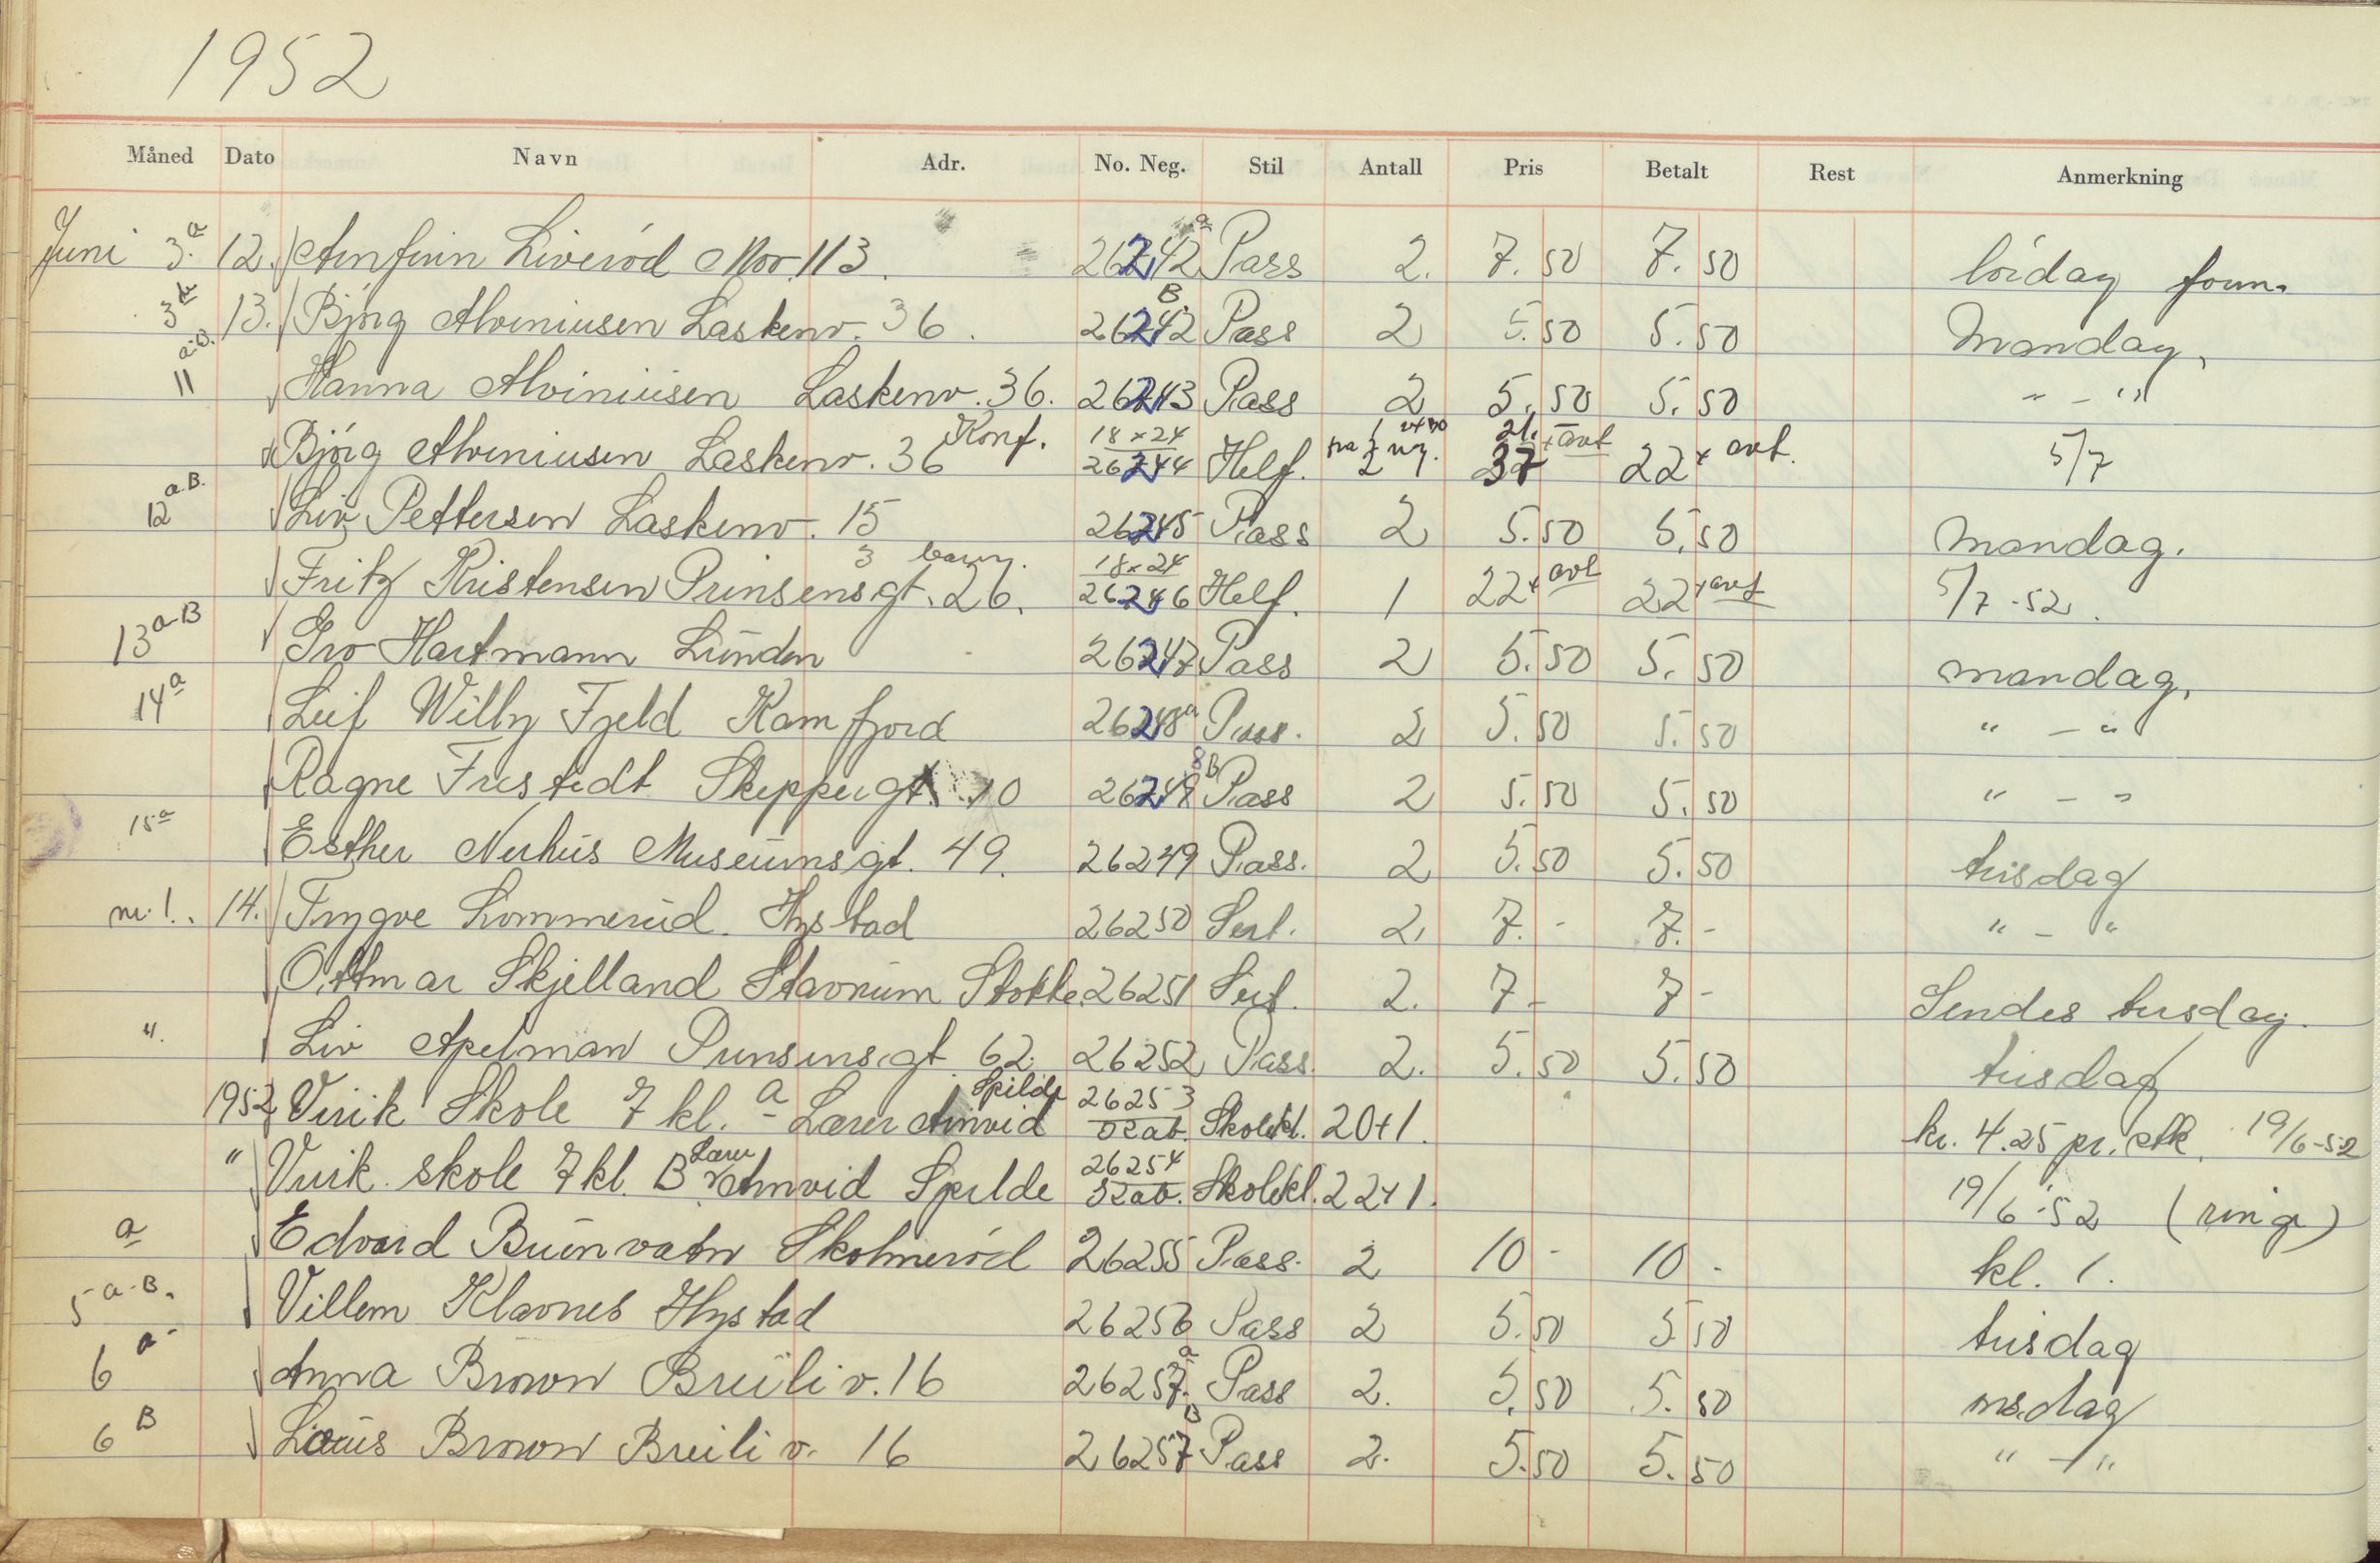 1952
Måned Dato Navn Adr. No. Neg. Stil Antall Pris Betalt Rest Anmerkning
Juni 3.a 12. Arnfinn Liverød Mor. 113. 26242a Pass 2. 7.50 7.50 lördag form.
3b 13. Björg Alviniusen Laskenv. 36. 26242B. Pass 2 5.50 5.50 Mandag,
11 a.B. Hanna Alviniusen Laskenv. 36. 26243 Pass 2 5.50 5.50 " - "
Björg Alviniusen Laskenv. 36 Konf. 18x24 26244 Helf. 22 + avt. 5/7
12 a.B. Liv Pettersen Laskenv. 15 26245 Pass 2 5.50 5.50 Mandag.
Fritz Kristensen Prinsensgt. 26. 3 barn. 18x24 26246 Helf. 1 22 + avt 22 + avt 5/7-52.
13 a-B Gro Hartmann Lunden 26247 Pass 2 5.50 5.50 mandag,
14a Leif Willy Fjeld Kamfjord 26248a Pass. 2 5.50 5.50 " - "
Ragne Frestedt Skippergt. 10 26248B Pass 2 5.50 5.50 " - "
15a Esther Nerhus Museumsgt. 49. 26249 Pass. 2 5.50 5.50 tirsdag
nr. 1. 14. Trygve Lommerud. Hystad 26250 Sert. 2. 7.- 7.- " - "
Ottmar Skjelland Stavnum Stokke 26251 Sert. 2. 7- 7- Sendes tirsdag.
". Liv Apelman Prinsensgt 62. 26252 Pass. 2. 5.50 5.50 tirsdag
1952 Virik Skole 7 kl. a - Lærer Arnvid Spilde 26253 Skolekl. 20+1. kr. 4.25 pr. stk. 19/6-52
" Virik skole 7 kl. B Lærer Arnvid Spilde 26254 Skolekl. 22+1. 19/6-52 (ringe)
a Edvard Buervatn Skolmerød 26255 Pass. 2 10 - 10 - kl. 1.
5 a-B. Villem Klavnes Hystad 26256 Pass 2 5.50 5.50 tirsdag
6 a Anna Brown Breiliv. 16 26257.a Pass 2. 5.50 5.50 onsdag
6 B Louis Brown Breiliv. 16 26257B Pass 2. 5.50 5.50 " - "